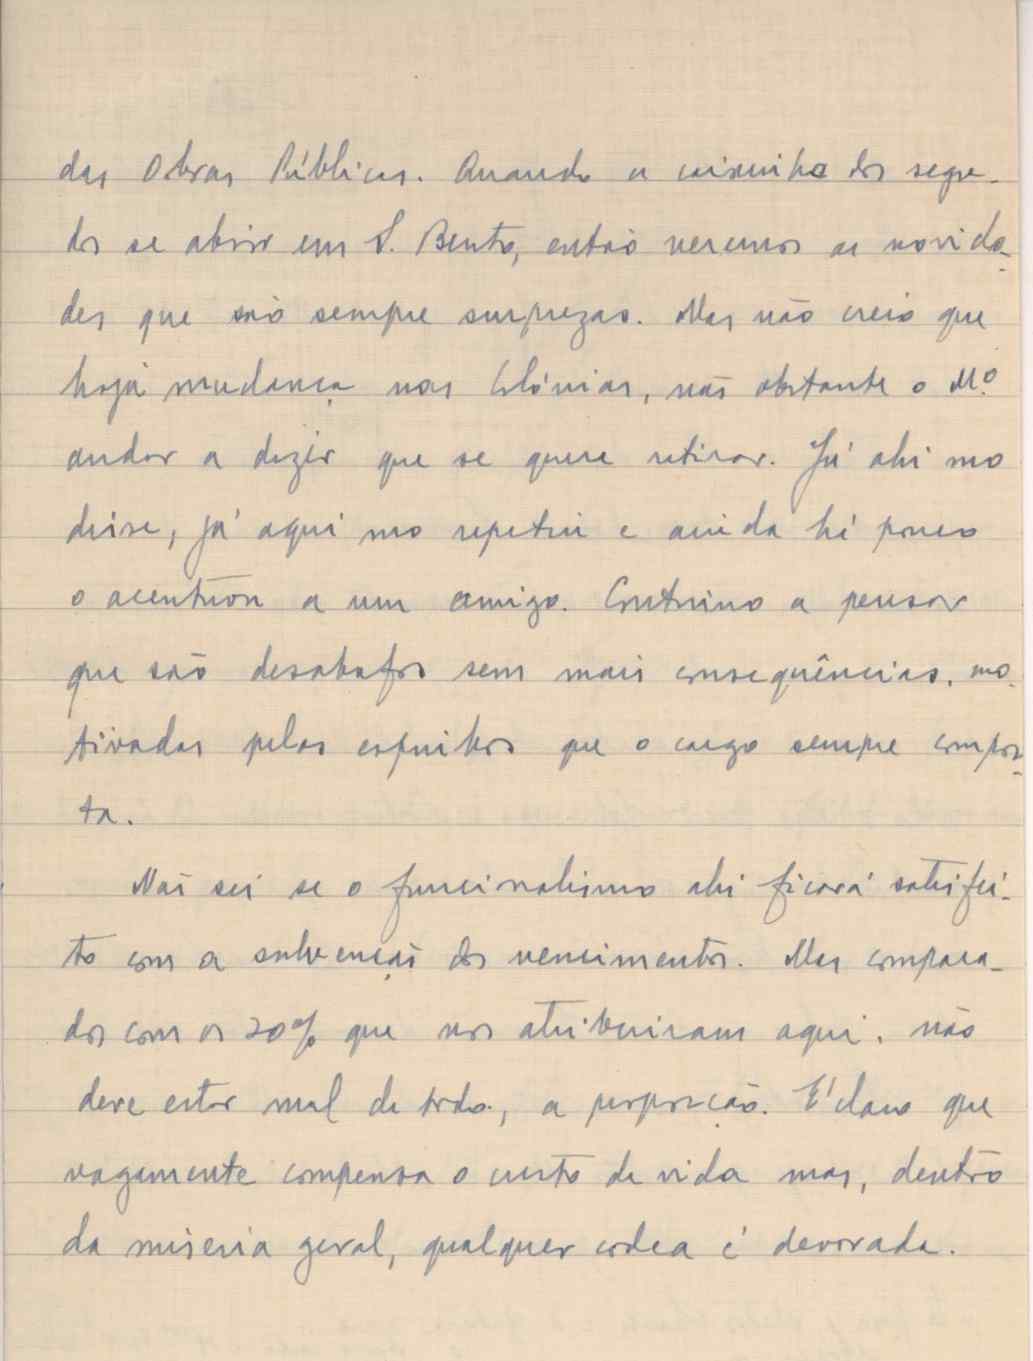 das Obras Públicas. Quando a caixinha dos segre-
dos se abrir em S. Bento, então veremos as novida-
des que são sempre surprezas. Mas não creio que
haja mudança nas Colónias, não obstante o Mº.
andar a dizer que se quere retirar. Já ahi mo
disse, já aqui mo repetiu e ainda há pouco
o acentuou a um amigo. Continuo a pensar
que são desabafos sem mais consequências, mo-
tivadas pelos espinhos que o cargo sempre compor-
ta.
Não sei se o funcionalismo ahi ficará satisfei-
to com a subvenção dos vencimentos. Mas compara-
dos com os 20% que nos atribuiram aqui, não
deve estar mal de todo, a proporção. É claro que
vagamente compensa o custo de vida mas, dentro
da miseria geral, qualquer codea é devorada.